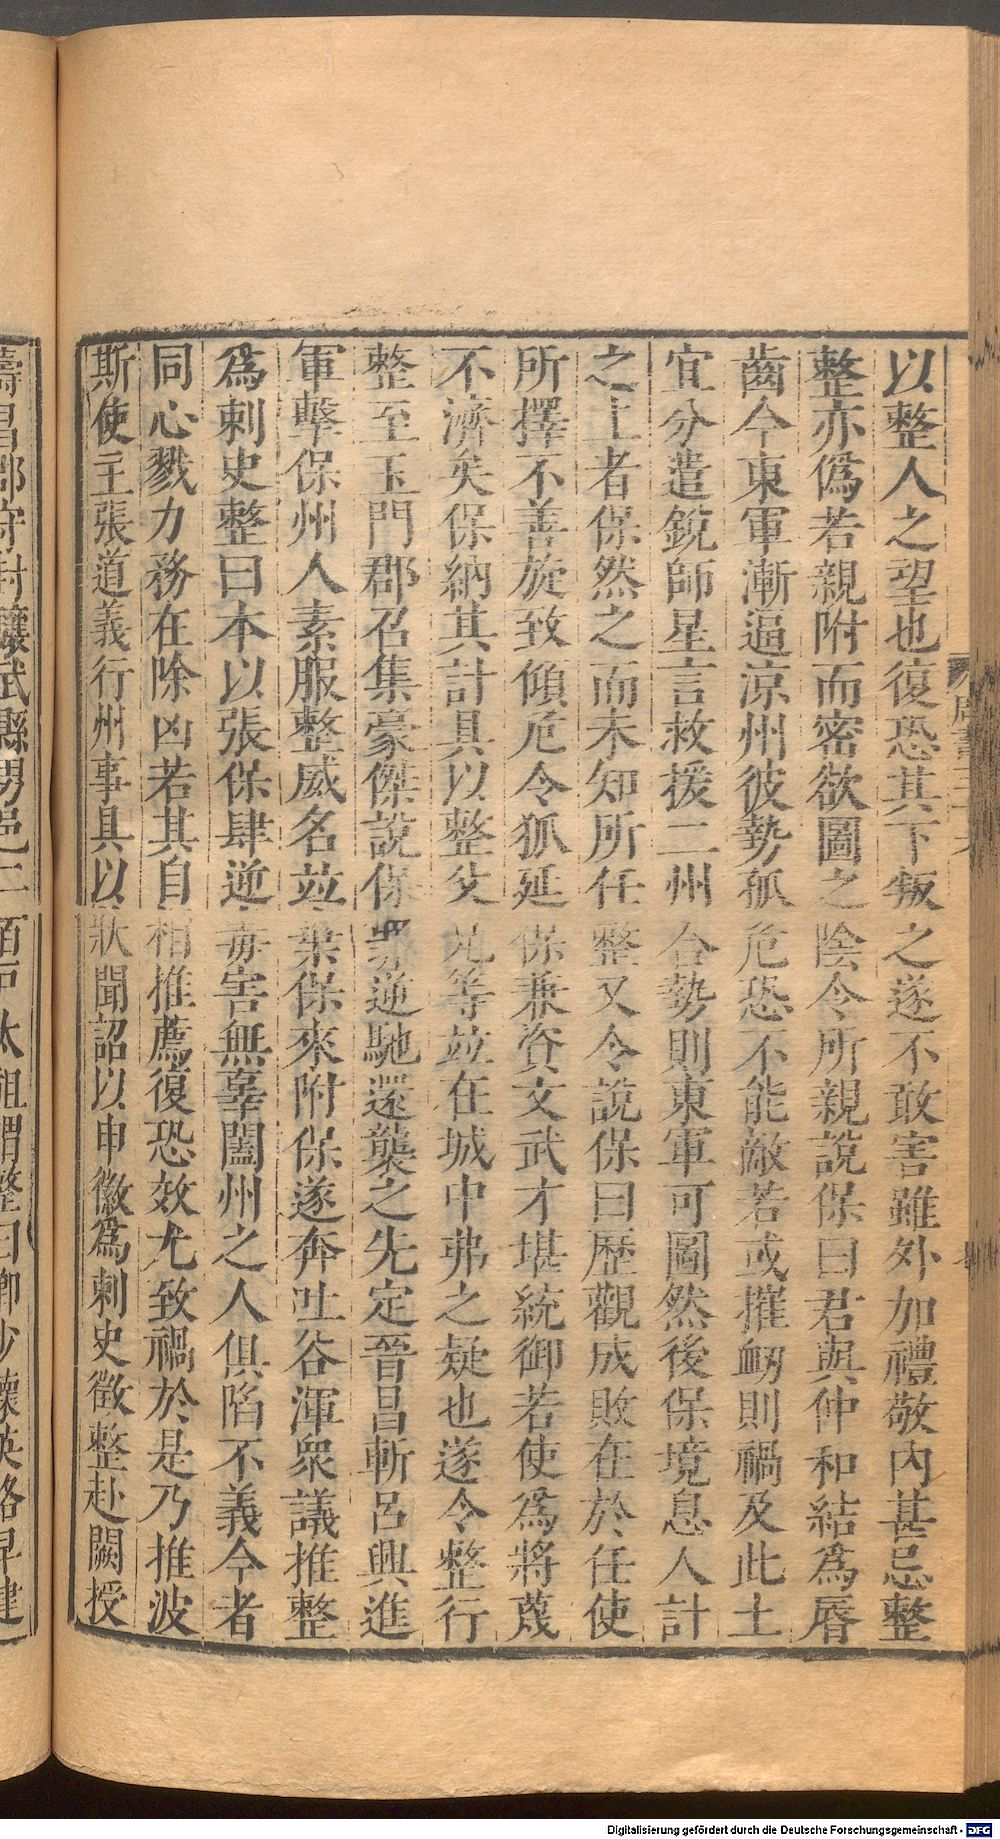 以整人之望也復恐其下叛之遂不敢害雖外加禮敬內甚忌整
整亦偽若親附而密欲圖之陰令所親說保曰君與仲和結為脣
齒今東軍漸逼涼州彼勢孤危恐不能敵若或摧衂則禍及此土
宜分遣銳師星言救援二州合勢則東軍可圖然後保境息人計
之上者保然之而未知所任整又令說保曰歷觀成敗在於任使
所擇不善旋致傾危令狐延保兼資文武才堪統御若使為將蔑
不濟矣保納其計具以整父兄等竝在城中弗之疑也遂令整行
整至玉門郡召集豪傑說保罪逆馳還襲之先定晉昌斬呂興進
軍擊保州人素服整威名竝棄保來附保遂奔吐谷渾衆議推整
為刺史整曰本以張保肆逆毒害無辜闔州之人俱陷不義今者
同心戮力務在除凶若其自相推薦復恐效尤致禍於是乃推波
斯使主張道義行州事具以狀聞詔以申徽為刺史徵整赴闕授
壽昌郡守封驤武縣男邑二百戶太祖謂整曰卿少懷英略早建
Digitalisierung gefördert durch die Deutsche Forschungsgemeinschaft - DFG